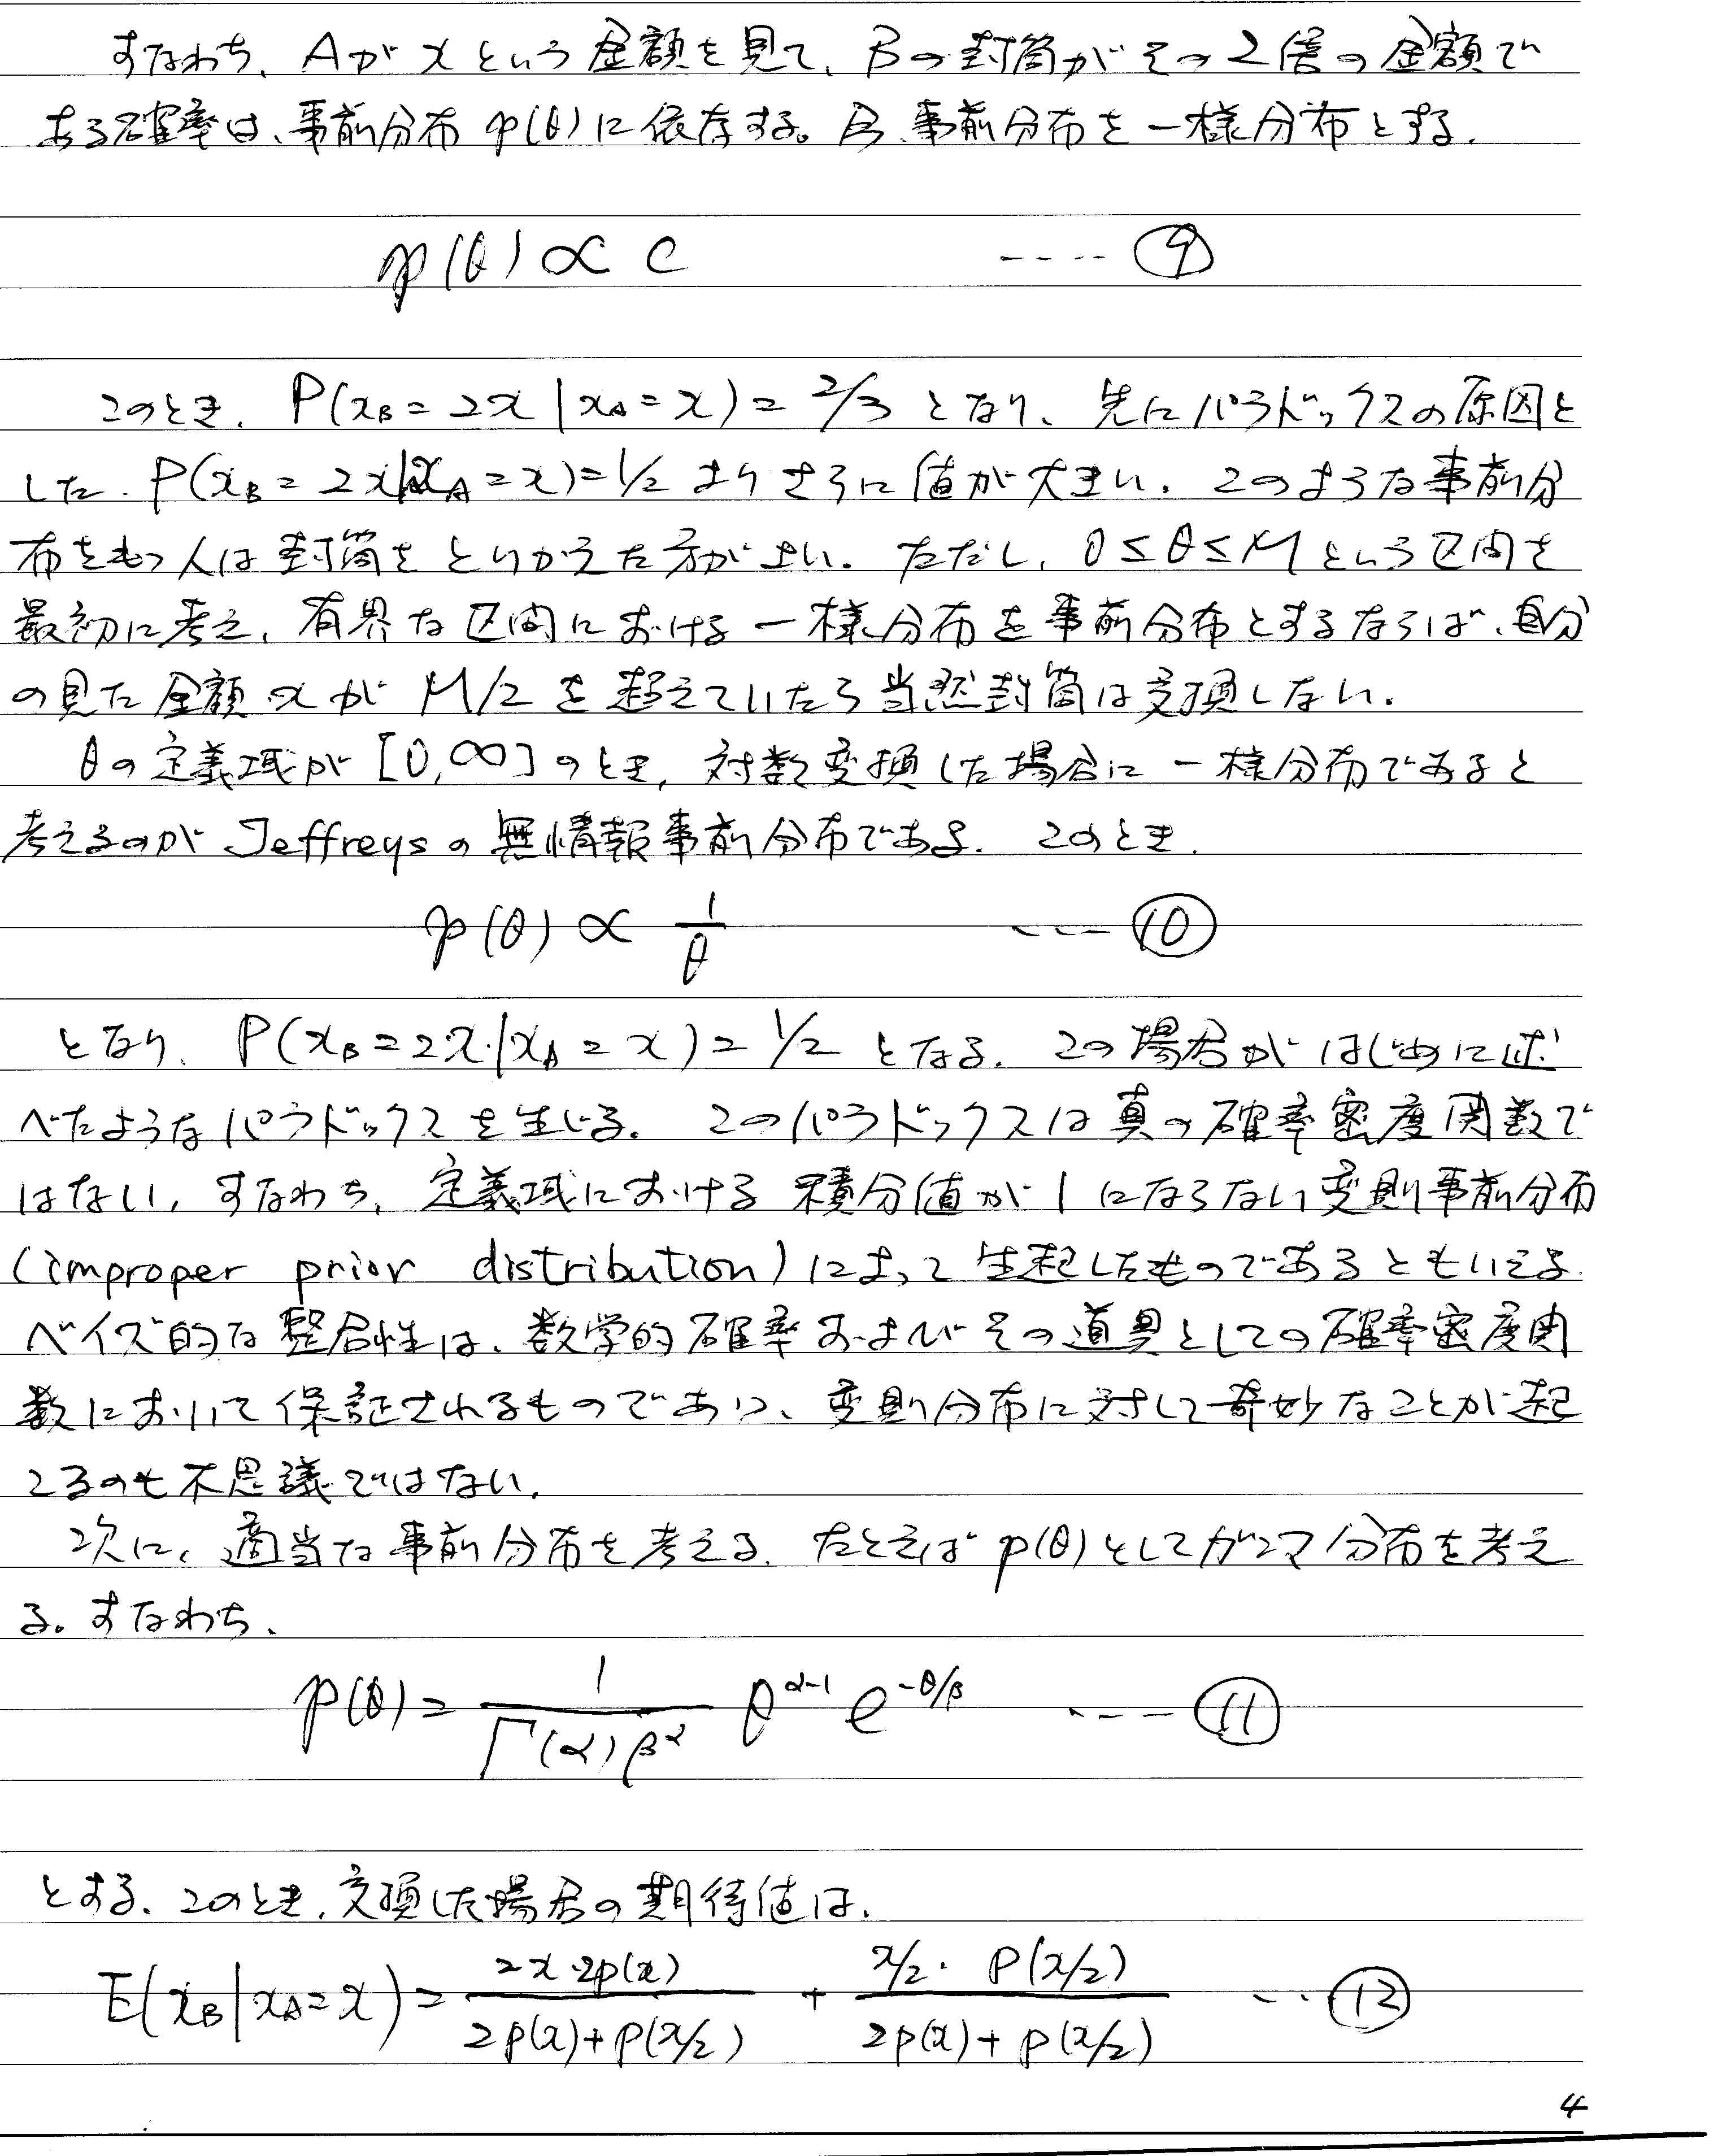 すなわち、Aがxという金額を見て、Bの封筒がその2倍の金額で
ある確率は、事前分布p(θ)に依存する。今、事前分布を一様分布とする.
p(θ) ∝ c ---- ⑨
このとき. P(xB = 2x | xA = x) = 2/3 となり、先にパラドックスの原因と
した. P(xB = 2x | xA = x) = 1/2 よりさらに値が大きい. このような事前分
布をもつ人は封筒をとりかえた方がよい. ただし, 0 ≤ θ ≤ M という区間を
最初に考え, 有界な区間における一様分布を事前分布とするならば、自分
の見た金額xがM/2を超えていたら当然封筒は交換しない.
θの定義域が[0,∞]のとき, 対数変換した場合に一様分布であると
考えるのがJeffreysの無情報事前分布である. このとき.
p(θ) ∝ 1/θ ---- ⑩
となり、P(xB = 2x | xA = x) = 1/2 となる. この場合がはじめに述
べたようなパラドックスを生じる. このパラドックスは真の確率密度関数で
はない, すなわち, 定義域における積分値が1にならない変則事前分布
(improper prior distribution)によって生起したものであるともいえる.
ベイズ的な整合性は、数学的確率およびその道具としての確率密度関
数において保証されるものであり、変則分布に対して奇妙なことが起
こるのも不思議ではない.
次に、適当な事前分布を考える. たとえばp(θ)としてガンマ分布を考え
る。すなわち、
p(θ) = 1/(Γ(α)β^α) θ^(α-1) e^(-θ/β) ---- ⑪
とする. このとき, 交換した場合の期待値は.
E(xB | xA = x) = 2x·2p(x)/(2p(x)+p(x/2)) + x/2·P(x/2)/(2p(x)+p(x/2)) --- ⑫
4